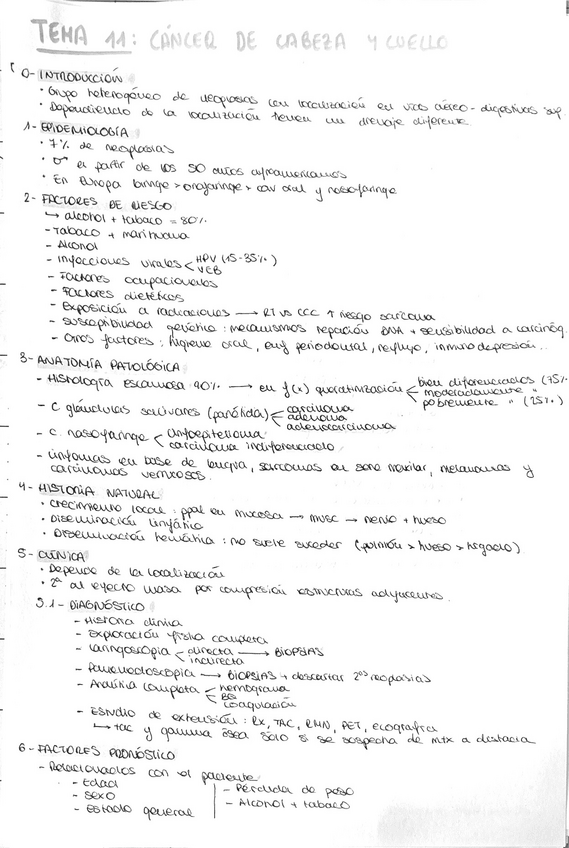 TEMA 11: CÁNCER DE CABEZA Y CUELLO
0- INTRODUCCIÓN
· Grupo heterogéneo de neoplasias con localización en vías aéreo-digestivas sup.
· Dependiendo de la localización tienen un drenaje diferente
1- EPIDEMIOLOGÍA
· 7% de neoplasias
· ♂ a partir de los 50 años afroamericanos
· En Europa laringe > orofaringe > cav oral y nasofaringe
2- FACTORES DE RIESGO
↳ alcohol + tabaco = 80%
- Tabaco + marihuana
- Alcohol
- Infecciones virales < HPV (15-35%)
VEB
- Factores ocupacionales
- Factores dietéticos
- Exposición a radiaciones → RT vs CCC ↑ riesgo sarcoma
- Susceptibilidad genética: mecanismos repación DNA + sensibilidad a carcinóg.
- Otros factores: higiene oral, enf periodontal, reflujo, inmunodepresión..
3- ANATOMÍA PATOLÓGICA
- Histología escamosa 90% → en f(x) queratinización < bien diferenciados (75%
moderadamente "
pobremente " (25%)
- C glándulas salivares (parótida) < carcinoma
adenoma
adenocarcinoma
- C. nasofaringe < linfoepitelioma
carcinoma indiferenciado
- Linfomas en base de lengua, sarcomas en seno maxilar, melanomas y
carcinomas verrucosos.
4- HISTORIA NATURAL
· Crecimiento local: ppal en mucosa → musc → nervio + hueso
· Diseminación linfática
· Diseminación hemática: no suele suceder (pulmón > hueso > hígado)
5- CLÍNICA
· Depende de la localización
· 2ª al efecto masa por compresión estructuras adyacentes.
5.1- DIAGNÓSTICO
- Historia clínica
- Exploración física completa
- Laringoscopia < directa → BIOPSIAS
indirecta
- Panendoscopia → BIOPSIAS + descartar 2ºs neoplasias
- Analítica completa < hemograma
BQ
coagulación
- Estudio de extensión: Rx, TAC, RMN, PET, ecografía
↳ tac y gamma ósea solo si se sospecha de mtx a distancia
6- FACTORES PRONÓSTICO
- Relacionados con el paciente
- Edad
- Sexo
- Estado general
- Pérdida de peso
- Alcohol + tabaco